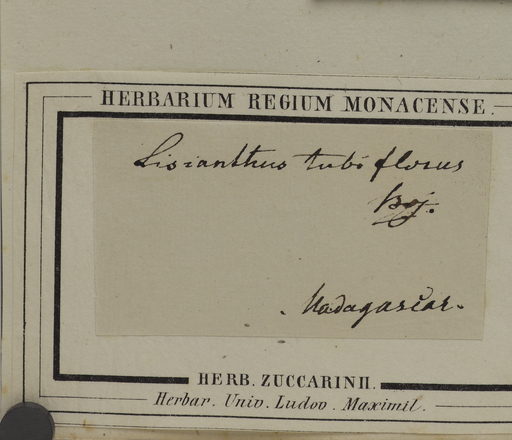 HERBARIUM REGIUM MONACENSE.
Lisianthus tubiflorus
Boj.
Madagascar.
HERB. ZUCCARINII.
Herbar. Univ. Ludov. Maximil.